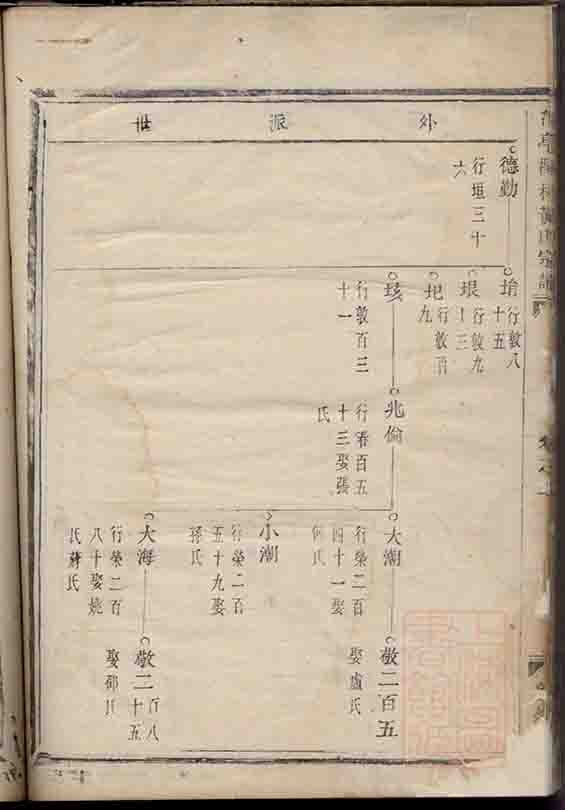 外派世
德勤
行垣三十
六
行敦八
十五
垠
行敦九
十三
圯
行敦百
九
垓
行敦百三
十一
兆倫
行春百五
十三娶張
氏
大潮
行榮二百
四十一娶
何氏
小潮
行榮二百
五十九娶
孫氏
大海
行榮二百
八十娶姚
氏蔣氏
敬二百五
娶盧氏
敬二百八
十五
娶邵氏